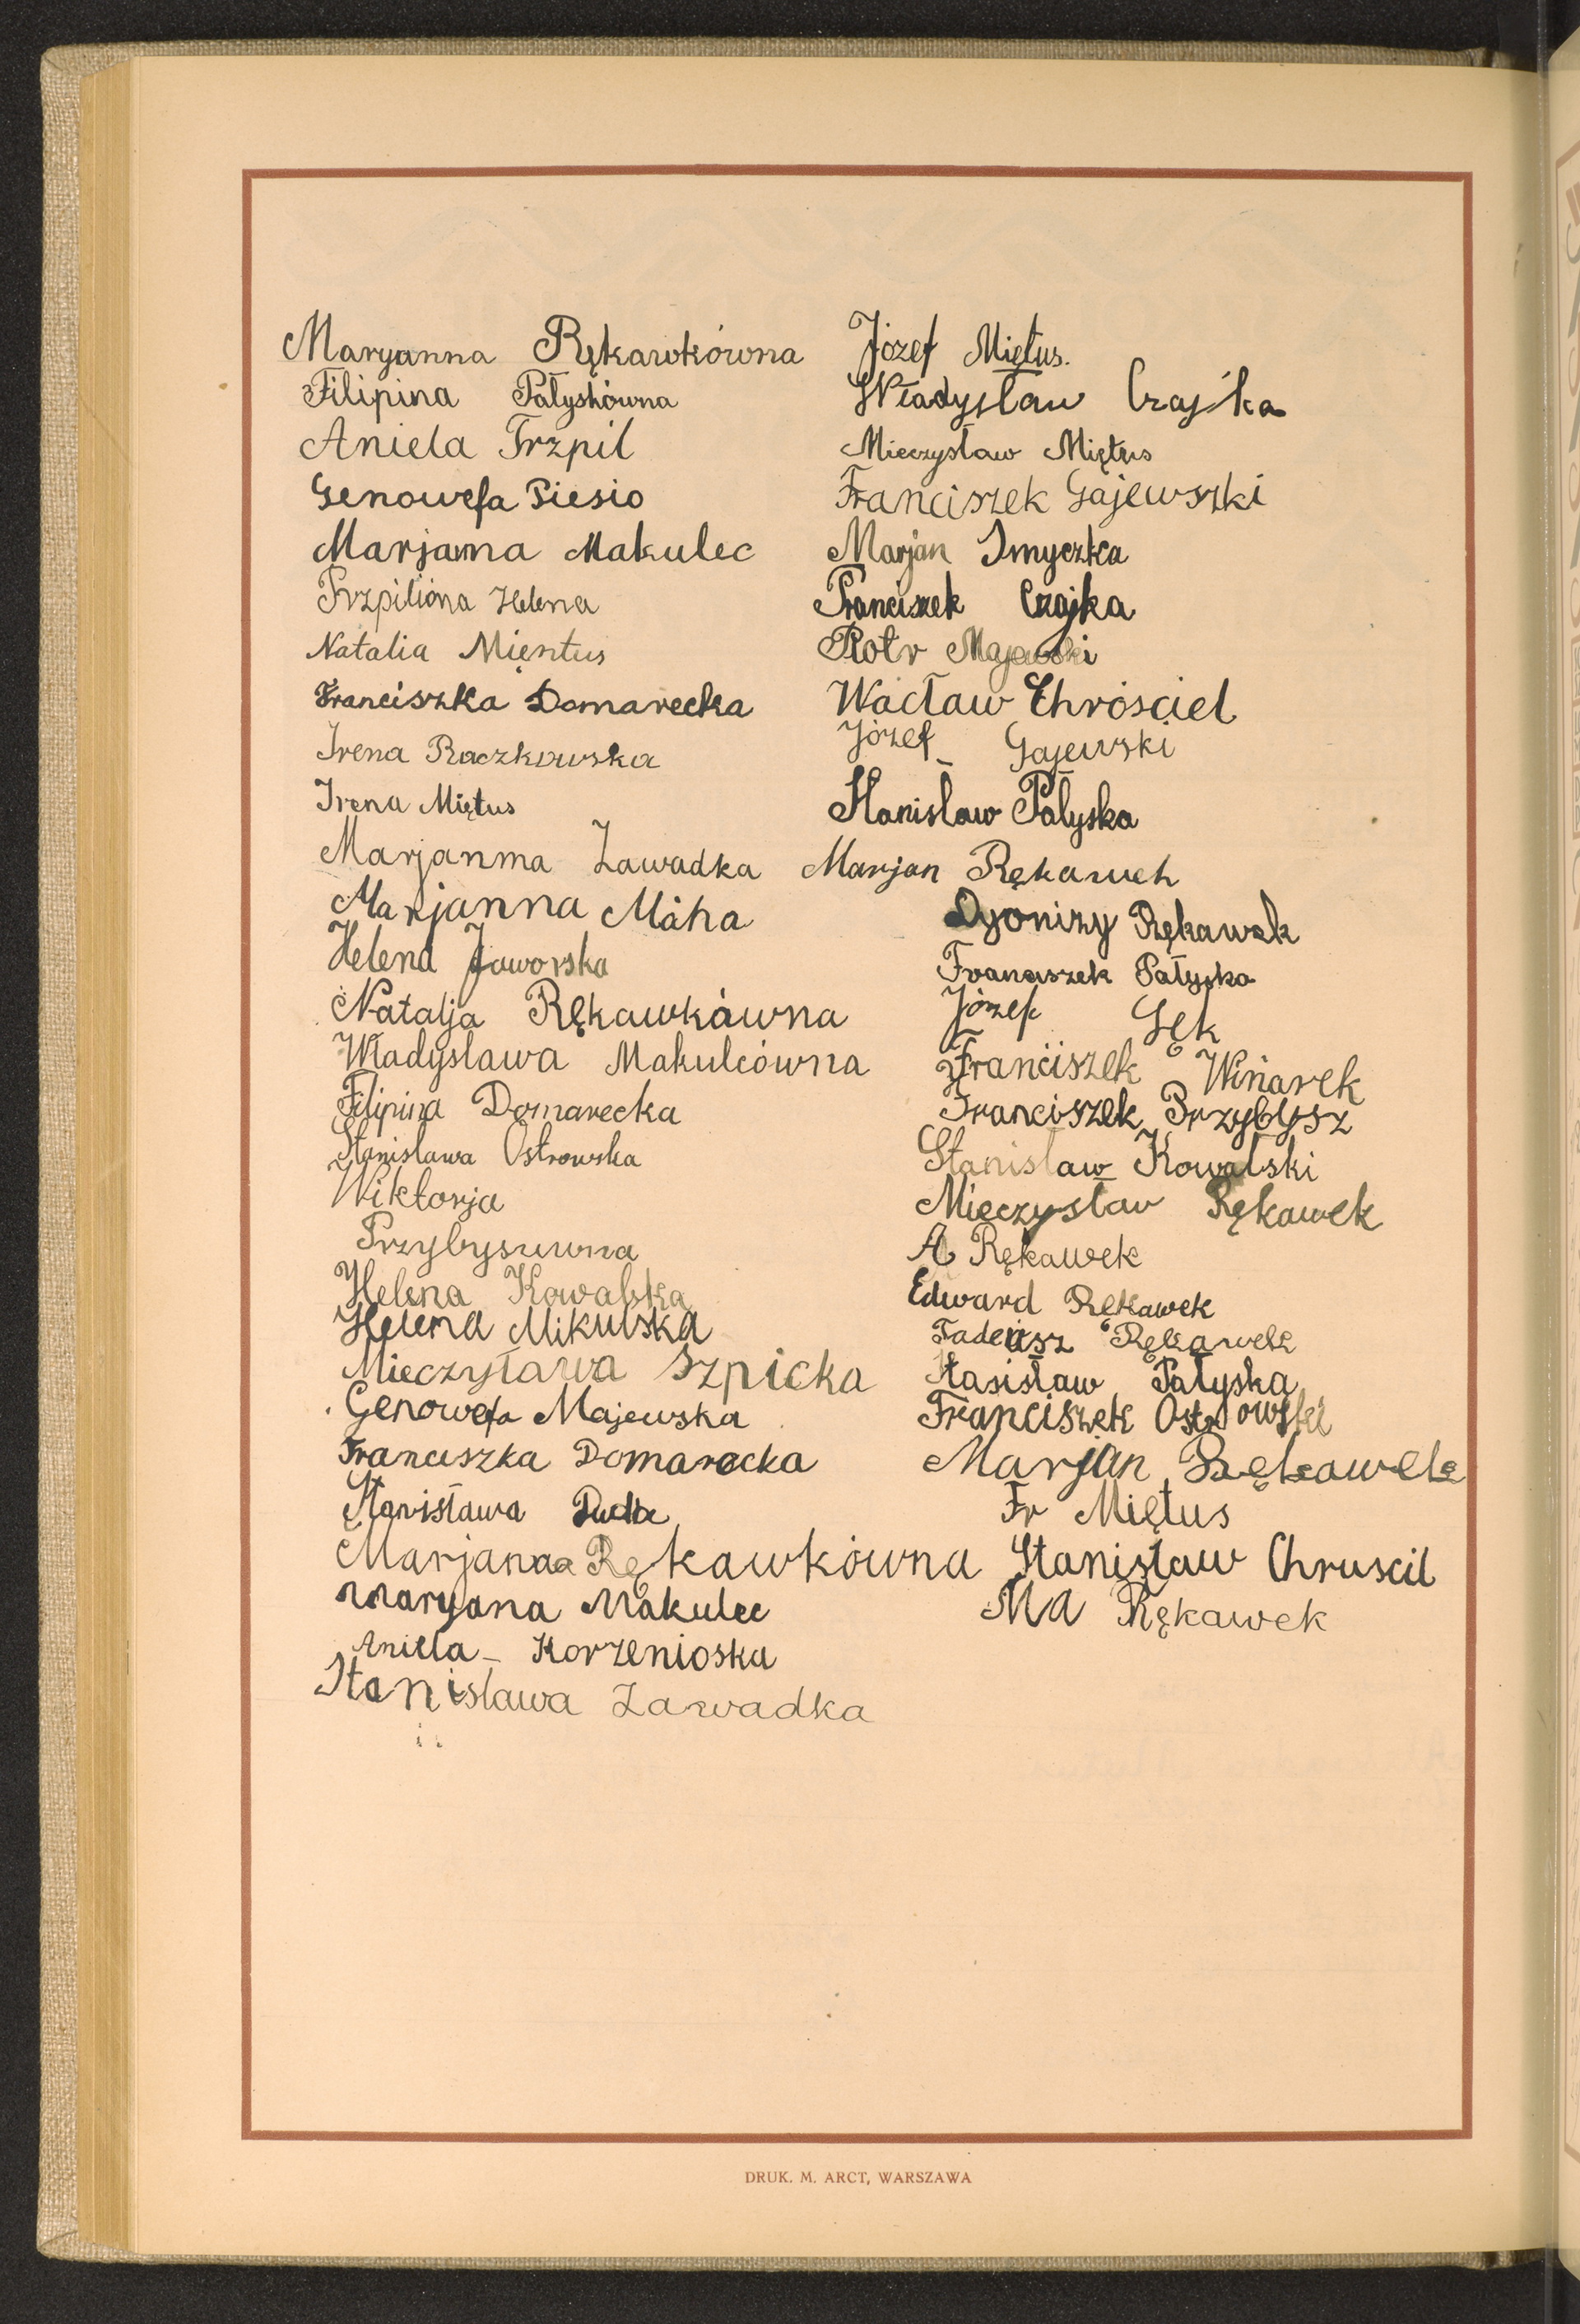 Maryanna Rękawkówna
Filipina Pałyskówna
Aniela Trzpil
Genowefa Piesio
Marjanna Makulec
Trzpilióna Helena
Natalia Mientus
Franciszka Domarecka
Irena Raczkowska
Irena Miętus
Marjanma Zawadka
Marjanna Máha
Helena Jaworska
Natalja Rękawkówna
Władysława Makulcówna
Filipina Domarecka
Stanisława Ostrowska
Wiktorja
Przybysuwna
Helena Kowalska
Helena Mikulska
Mieczysława Szpicka
Genowefa Majewska
Franciszka Domarecka
Stanisława Duda
Marjanaa Rękawkówna
Maryana Makulec
Aniela - Korzenioska
Stanislawa Zawadka
Józef Miętus.
Władysław Czajka
Mieczysław Miętus
Franciszek Gajewszki
Marjan Smyczka
Franciszek Czajka
Piotr Majewski
Wacław Chróściel
Józef Gajewski
Stanisław Pałyska
Marjan Rękawek
Dyonizy Rękawek
Franciszek Pałyska
Józef Gęk
Franciszek Winarek
Franciszek Przybysz
Stanisław Kowalski
Mieczysław Rękawek
A Rękawek
Edward Rękawek
Tadeusz Rękawek
Stasisław Pałyska
Franciszek Ostrowski
Marjan Rękawek
Fr Miętus
Stanisław Chruscil
MA Rękawek
DRUK. M. ARCT, WARSZAWA